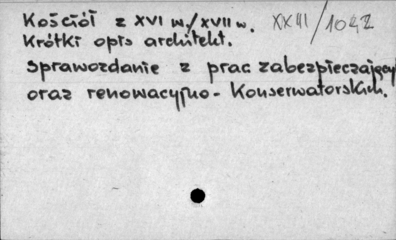 Kościół z XVI w./XVII w. XXIII/1042
Krótki opis architekt.
Sprawozdanie z prac zabezpieczający
oraz renowacyjno-Konserwatorskich.